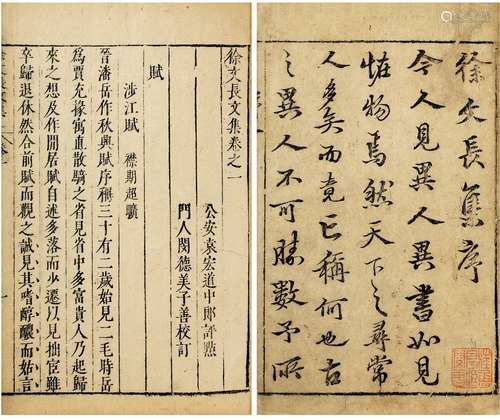 徐文長集序
今人見異人異書如見
怪物焉然天下之尋常
人多矣而竟亡稱何也古
之異人不可勝數予所
徐文長文集卷之一
公安袁宏道中郎評點
門人閔德美子善校訂
賦
涉江賦 襟期超曠
晉潘岳作秋興賦序稱三十有二歲始見二毛時岳
為賈充掾寓直散騎之省見省中多富貴人乃起歸
來之想及作閒居賦自述多落而少遷以見拙宦雖
卒歸退休然合前賦而觀之誠見其嗜醇醲而姑言